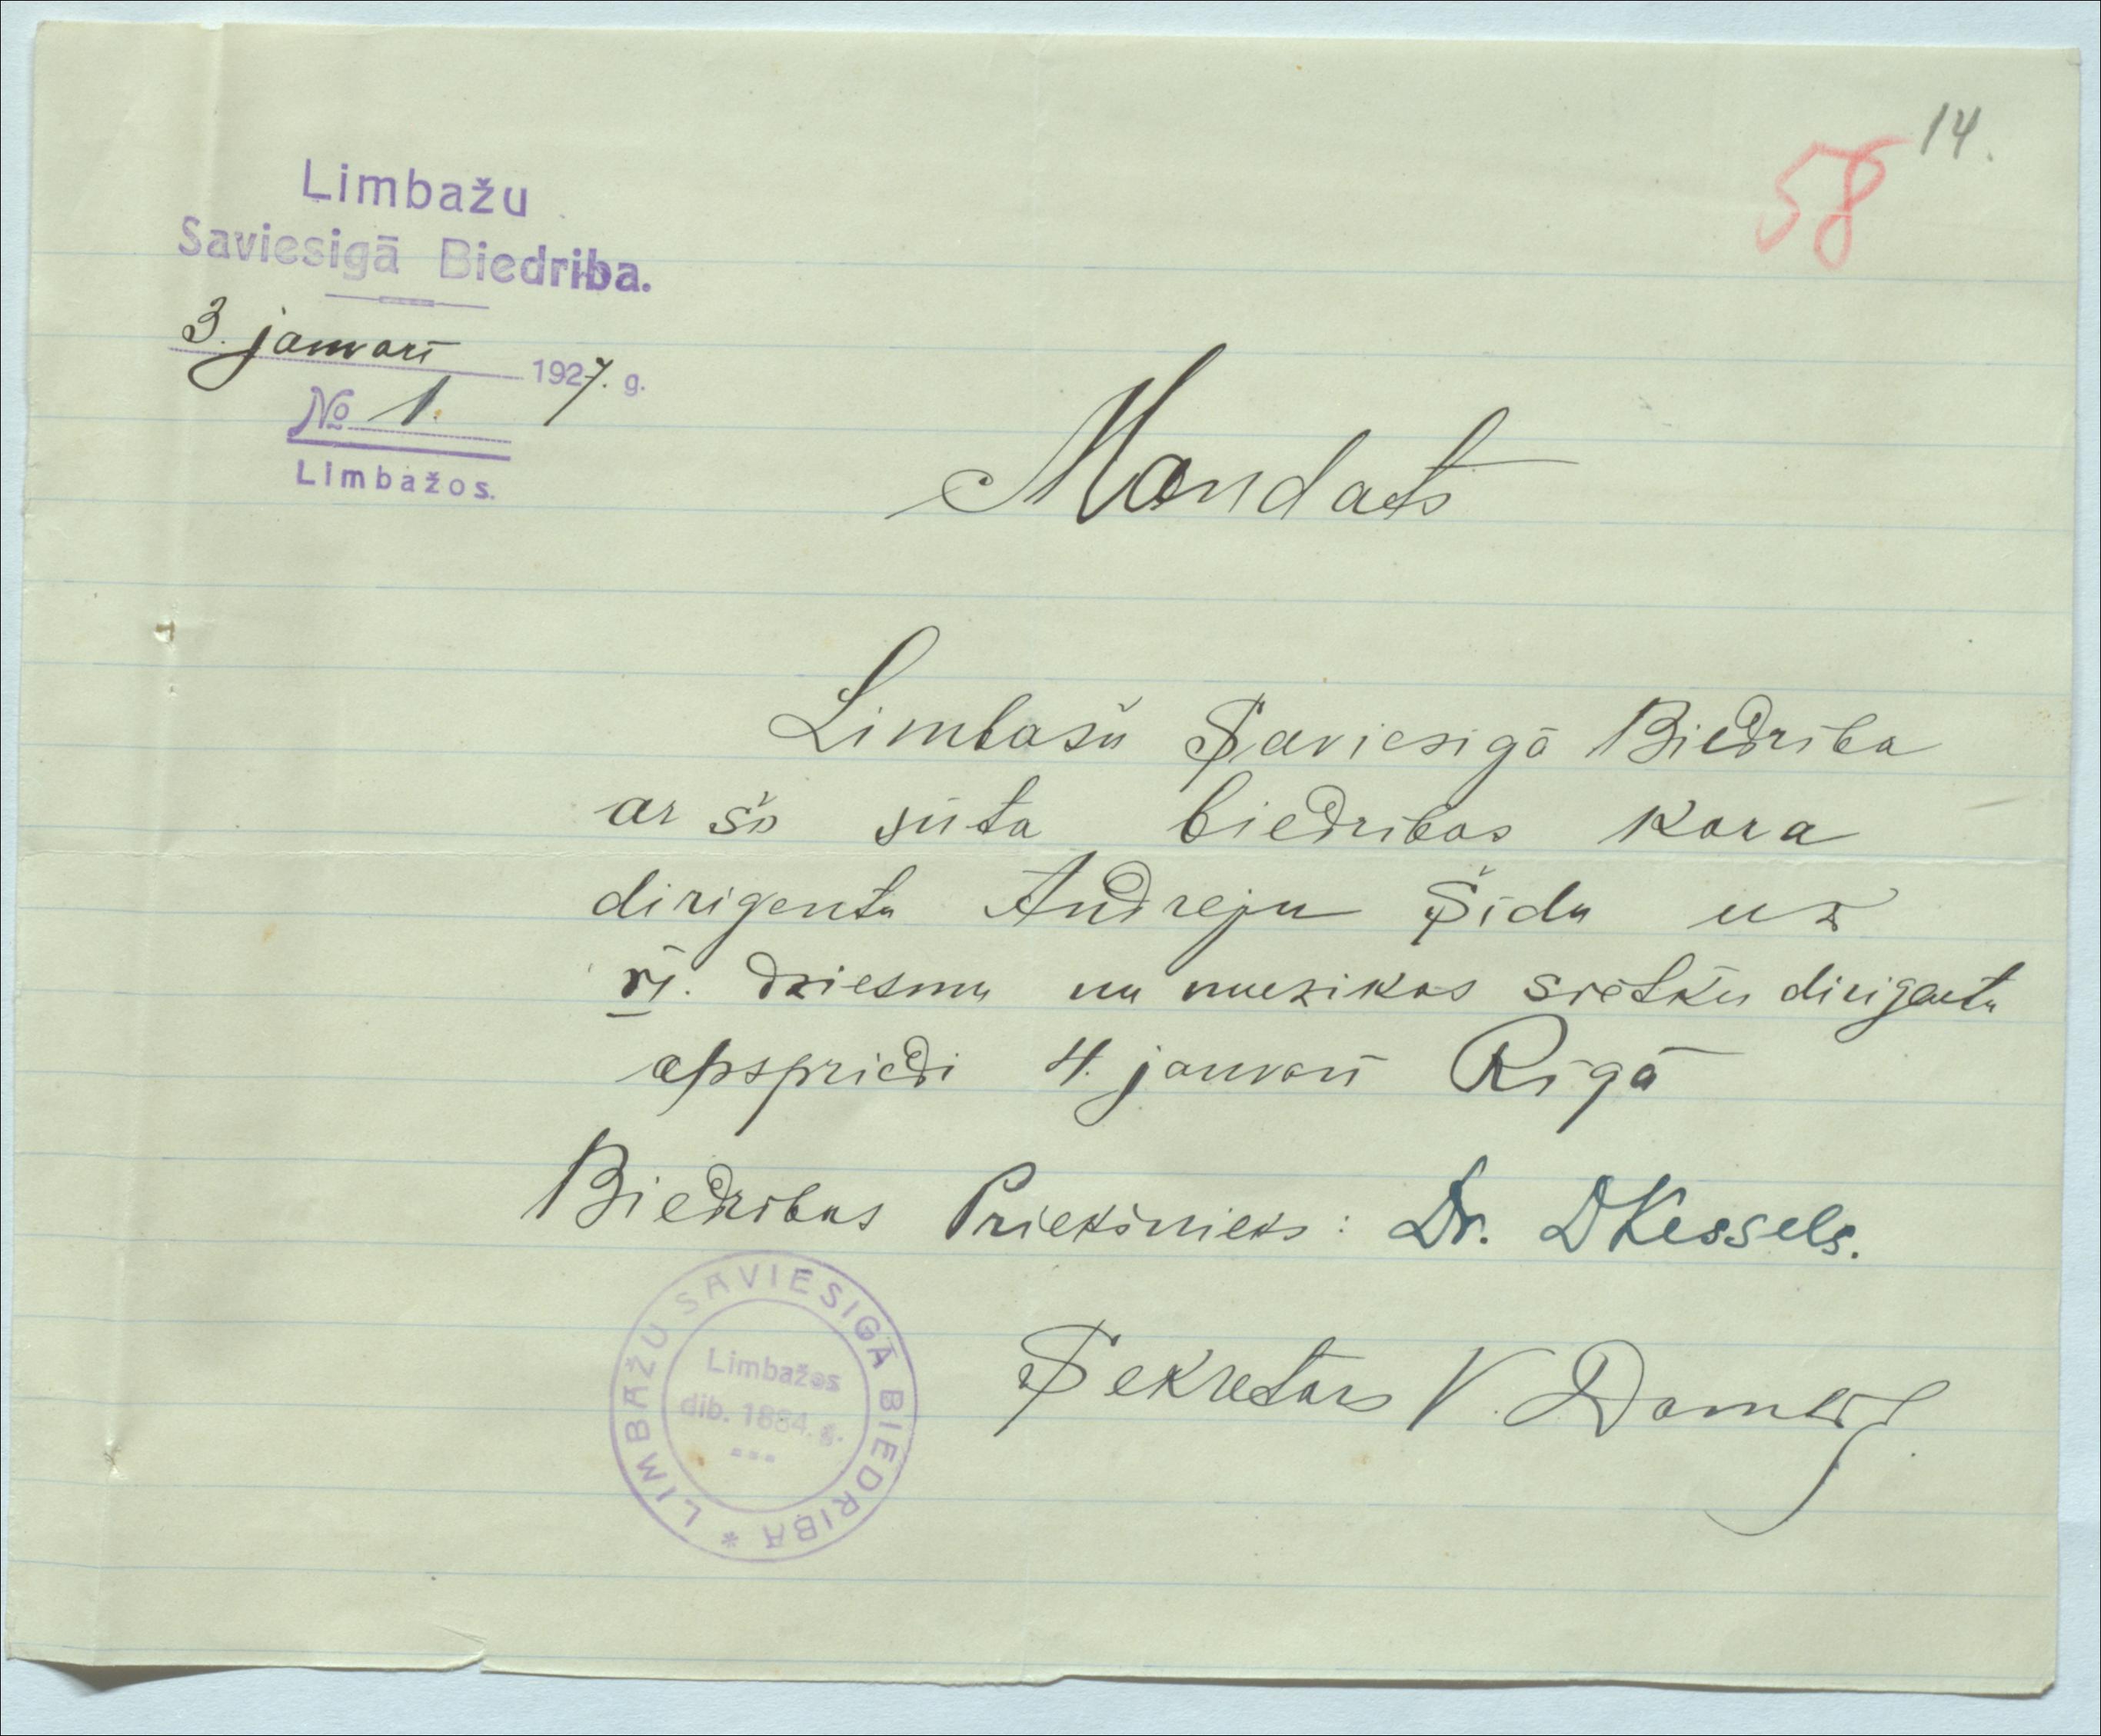 14.
58
Limbažu
Saviesigā Biedriba.
3. janvarī 1927. g.
№ 1.
Limbažos.
Mandats
Limbažu Saviesigā Biedrība
ar šo sūta biedrības kora
dirigentu Andreju Šīdu uz
VI. dziesmu un muzikas svētku dirigentu
apspriedi 4. janvarī Rīgā
Biedrības Priekšnieks: Dr. DKessels.
Sekretars V.
LIMBAŽU SAVIESIGĀ BIEDRIBA *
Limbažos
dib. 1884. g.